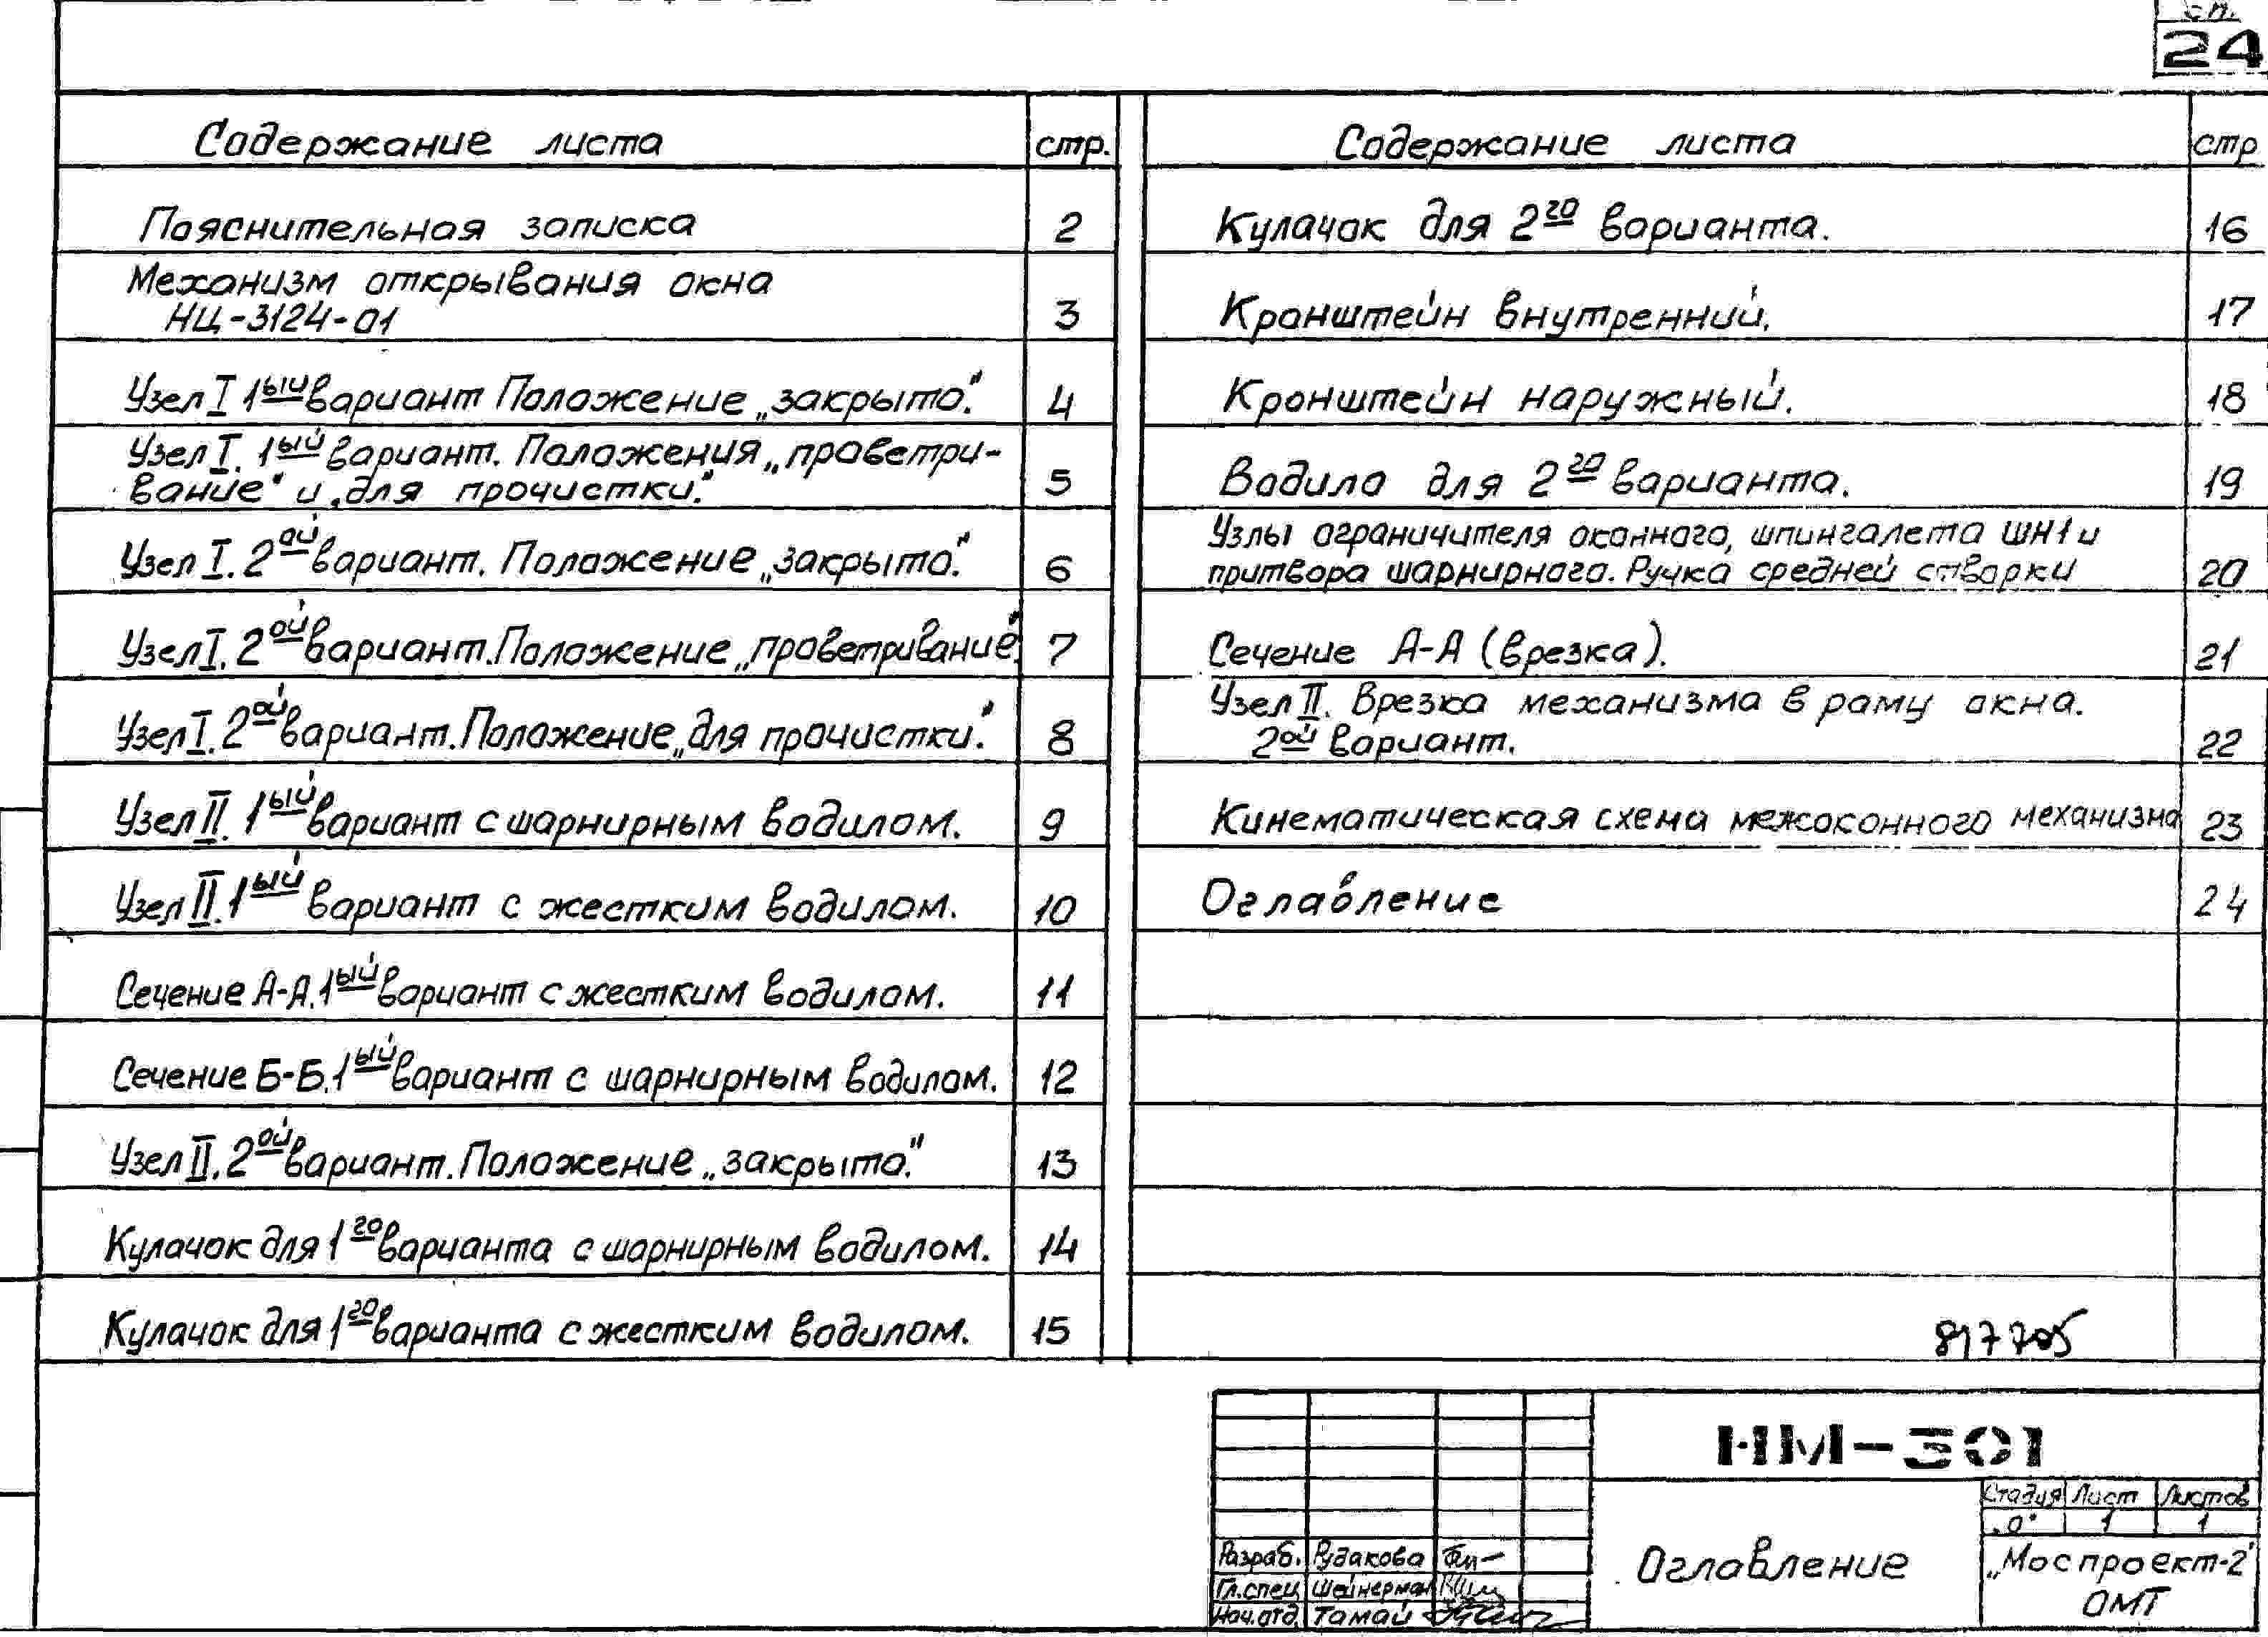 24
Содержание листа стр.
Пояснительная записка 2
Механизм открывания окна
НЦ-3124-01 3
Узел I 1ый вариант Положение „закрыто". 4
Узел I. 1ый вариант. Положения „проветри-
вание" и „для прочистки". 5
Узел I. 2ой вариант. Положение „закрыто". 6
Узел I. 2ой вариант. Положение „проветривание". 7
Узел I. 2ой вариант. Положение „для прочистки". 8
Узел II. 1ый вариант с шарнирным водилом. 9
Узел II. 1ый вариант с жестким водилом. 10
Сечение А-А. 1ый вариант с жестким водилом. 11
Сечение Б-Б. 1ый вариант с шарнирным водилом. 12
Узел II. 2ой вариант. Положение „закрыто". 13
Кулачок для 1го варианта с шарнирным водилом. 14
Кулачок для 1го варианта с жестким водилом. 15
Содержание листа стр
Кулачок для 2го варианта. 16
Кронштейн внутренний. 17
Кронштейн наружный. 18
Водило для 2го варианта. 19
Узлы ограничителя оконного, шпингалета ШН1 и
притвора шарнирного. Ручка средней створки 20
Сечение А-А (врезка). 21
Узел II. Врезка механизма в раму окна.
2ой вариант. 22
Кинематическая схема межоконного механизма 23
Оглавление 24
817705
НМ-301
Стадия Лист Листов
„О" 1 1
Разраб. Рудакова
Гл.спец Шейнерман
Нач.отд. Тамай
Оглавление
„Моспроект-2"
ОМТ